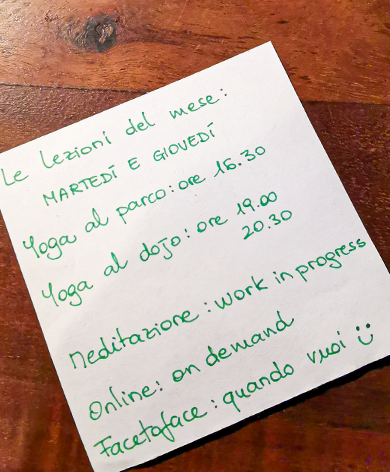 Le lezioni del mese:
MARTEDÍ E GIOVEDÍ
Yoga al parco: ore 18.30
Yoga al dojo: ore 19.00
20.30
Meditazione: work in progress
Online: on demand
Facetoface: quando vuoi :)